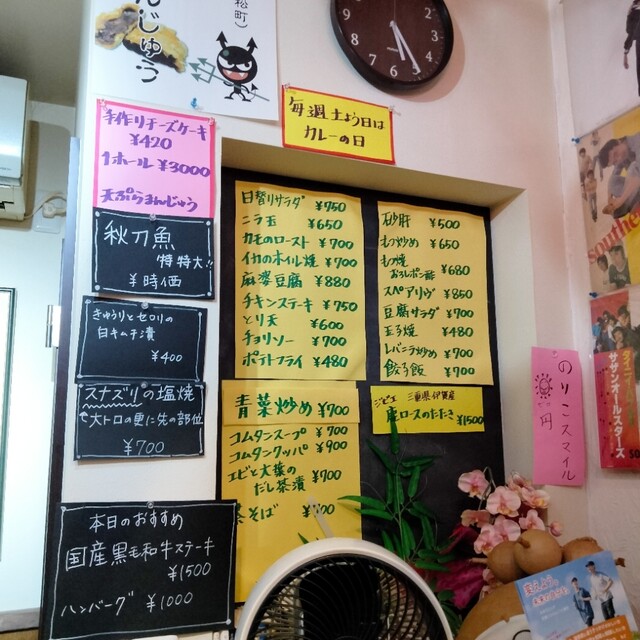 んじゅう
松町)
毎週土よう日は
カレーの日
手作りチーズケーキ
¥420
1ホール ¥3000
天ぷらまんじゅう
秋刀魚
(特特大!!)
¥時価
きゅうりとセロリの
白キムチ漬
¥400
スナズリの塩焼
大トロの更に先の部位
¥700
本日のおすすめ
国産黒毛和牛ステーキ
¥1500
ハンバーグ ¥1000
日替りサラダ ¥750
ニラ玉 ¥650
カモのロースト ¥700
イカのホイル焼 ¥900
麻婆豆腐 ¥880
チキンステーキ ¥750
とり天 ¥600
チョリソー ¥700
ポテトフライ ¥480
青菜炒め ¥700
コムタンスープ ¥700
コムタンクッパ ¥900
エビと大葉の
だし茶漬 ¥700
茶そば
砂肝 ¥500
もつ炒め ¥650
もつ焼
おろしポン酢 ¥680
スペアリヴ ¥850
豆腐サラダ ¥700
玉子焼 ¥480
レバニラ炒め ¥700
ジビエ 三重県伊賀産
鹿ロースのたたき ¥1500
のりこスマイル
円
サザンオールスターズ